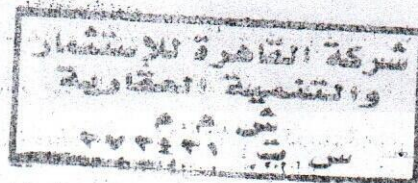 شركة القاهرة للإستثمار
والتنمية العقارية
ش م م
س ت